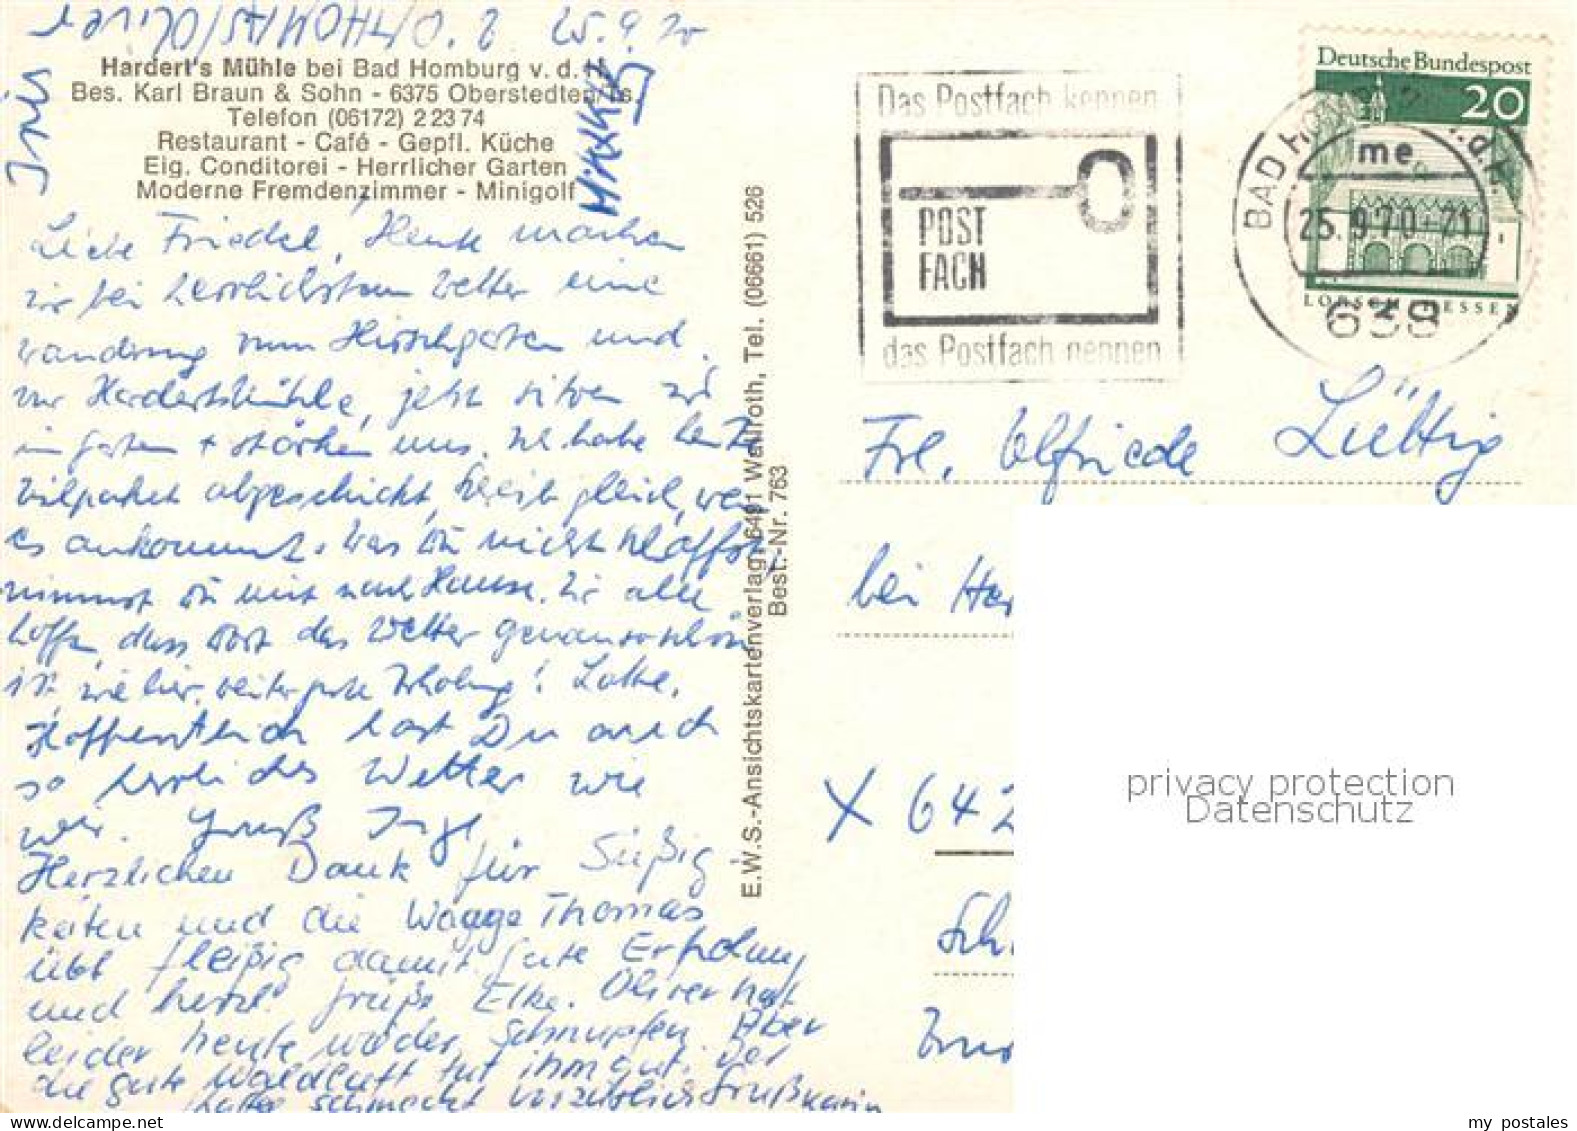 O. THOMAS/Oliver
25.9.70
Iris
Hardert's Mühle bei Bad Homburg v. d. H.
Bes. Karl Braun & Sohn - 6375 Oberstedten/Ts.
Telefon (06172) 2 23 74
Restaurant - Café - Gepfl. Küche
Eig. Conditorei - Herrlicher Garten
Moderne Fremdenzimmer - Minigolf
Liebe Friedel, Heute machen
wir bei herrlichstem Wetter eine
wandrung zum Hirschgarten und
zur Hardertsmühle, jetzt sitzen wir
im garten + stärken uns. Ich habe heute
abgeschickt, schreib gleich, wenn
es ankommt. was du nicht schaffst,
nimmst du mit nach Hause. Wir alle
hoffen, dass dort das Wetter genauso schön
ist, wie hier. weiter gute Erholung! Lotte.
Hoffentlich hast Du auch
so herrliches Wetter wie
wir. Gruß Inge.
Herzlichen Dank für Süßig-
keiten und die Waage Thomas
übt fleißig damit. Gute Erholung
und herzl. Grüße Elke. Oliver hat
leider heute wieder Schnupfen. Aber
die gute Waldluft tut ihm gut. Der
Kaffee schmeckt vorzüglich Gruß Karin
E.W.S.-Ansichtskartenverlag, 6491 Wallroth, Tel. (06661) 526
Best.-Nr. 763
Das Postfach kennen
POST
FACH
das Postfach nennen
Deutsche Bundespost
20
LORSCH HESSEN
BAD HOMBURG v.d.H.
me
25.9.70-21
638
Frl. Elfriede Lüttig
bei
X 642
privacy protection
Datenschutz
my postales